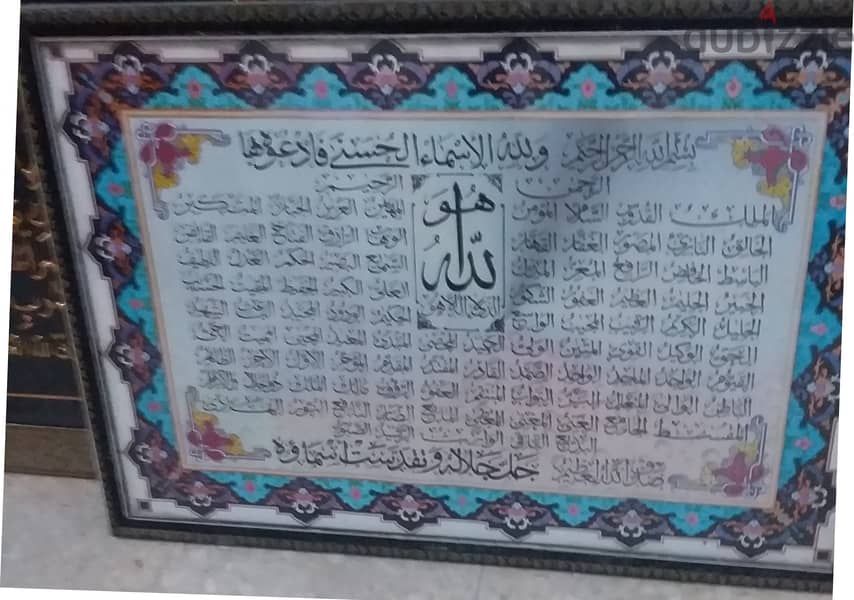 بسم الله الرحمن الرحيم ولله الاسماء الحسنى فادعوه بها
الرحمن الرحيم
هو الله
الملك القدوس السلام المؤمن المهيمن العزيز الجبار المتكبر
الخالق البارئ المصور الغفار القهار الوهاب الرزاق الفتاح العليم القابض
الباسط الخافض الرافع المعز المذل السميع البصير الحكم العدل اللطيف
الخبير الحليم العظيم الغفور الشكور العلي الكبير الحفيظ المقيت الحسيب
الجليل الكريم الرقيب المجيب الواسع الحكيم الودود المجيد الباعث الشهيد
الحق الوكيل القوي المتين الولي الحميد المحصي المبدئ المعيد المحيي المميت الحي
القيوم الواجد الماجد الواحد الصمد القادر المقتدر المقدم المؤخر الاول الاخر الظاهر
الباطن الوالي المتعال البر التواب المنتقم العفو الرؤوف مالك الملك ذو الجلال والاكرام
المقسط الجامع الغني المغني المانع الضار النافع النور الهادي
البديع الباقي الوارث الرشيد الصبور
صدق الله العظيم جل جلاله وتقدست اسماؤه
dubizzle